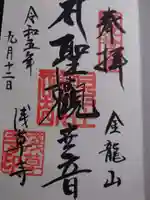 奉拝
金龍山
聖観世音
浅草寺
令和五年
九月十二日